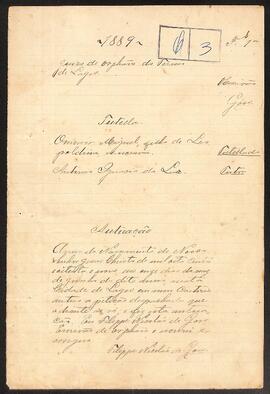 1889
6 3
Juizo de Orphãos do Termo
de Lages
Escrivão
Góss
Tutela
O menor Miguel, filho de Leo
poldina
Tutellado
Antonio Ignacio da Luz
Tutor
Autuação
Anno do Nascimento de Nosso
Senhor Jesus Christo de mil oito centos
oitenta e nove aos onze dias do mez
de do dito anno, nesta
Cidade de Lages em meu Cartorio
autuo a petição despachada que
adiante se vê; do que faço esta autoa
ção. Eu Felippe Nicolao de Góss
Escrivão de Orphãos o escrevi e
assigno
Felippe Nicolao de Góss